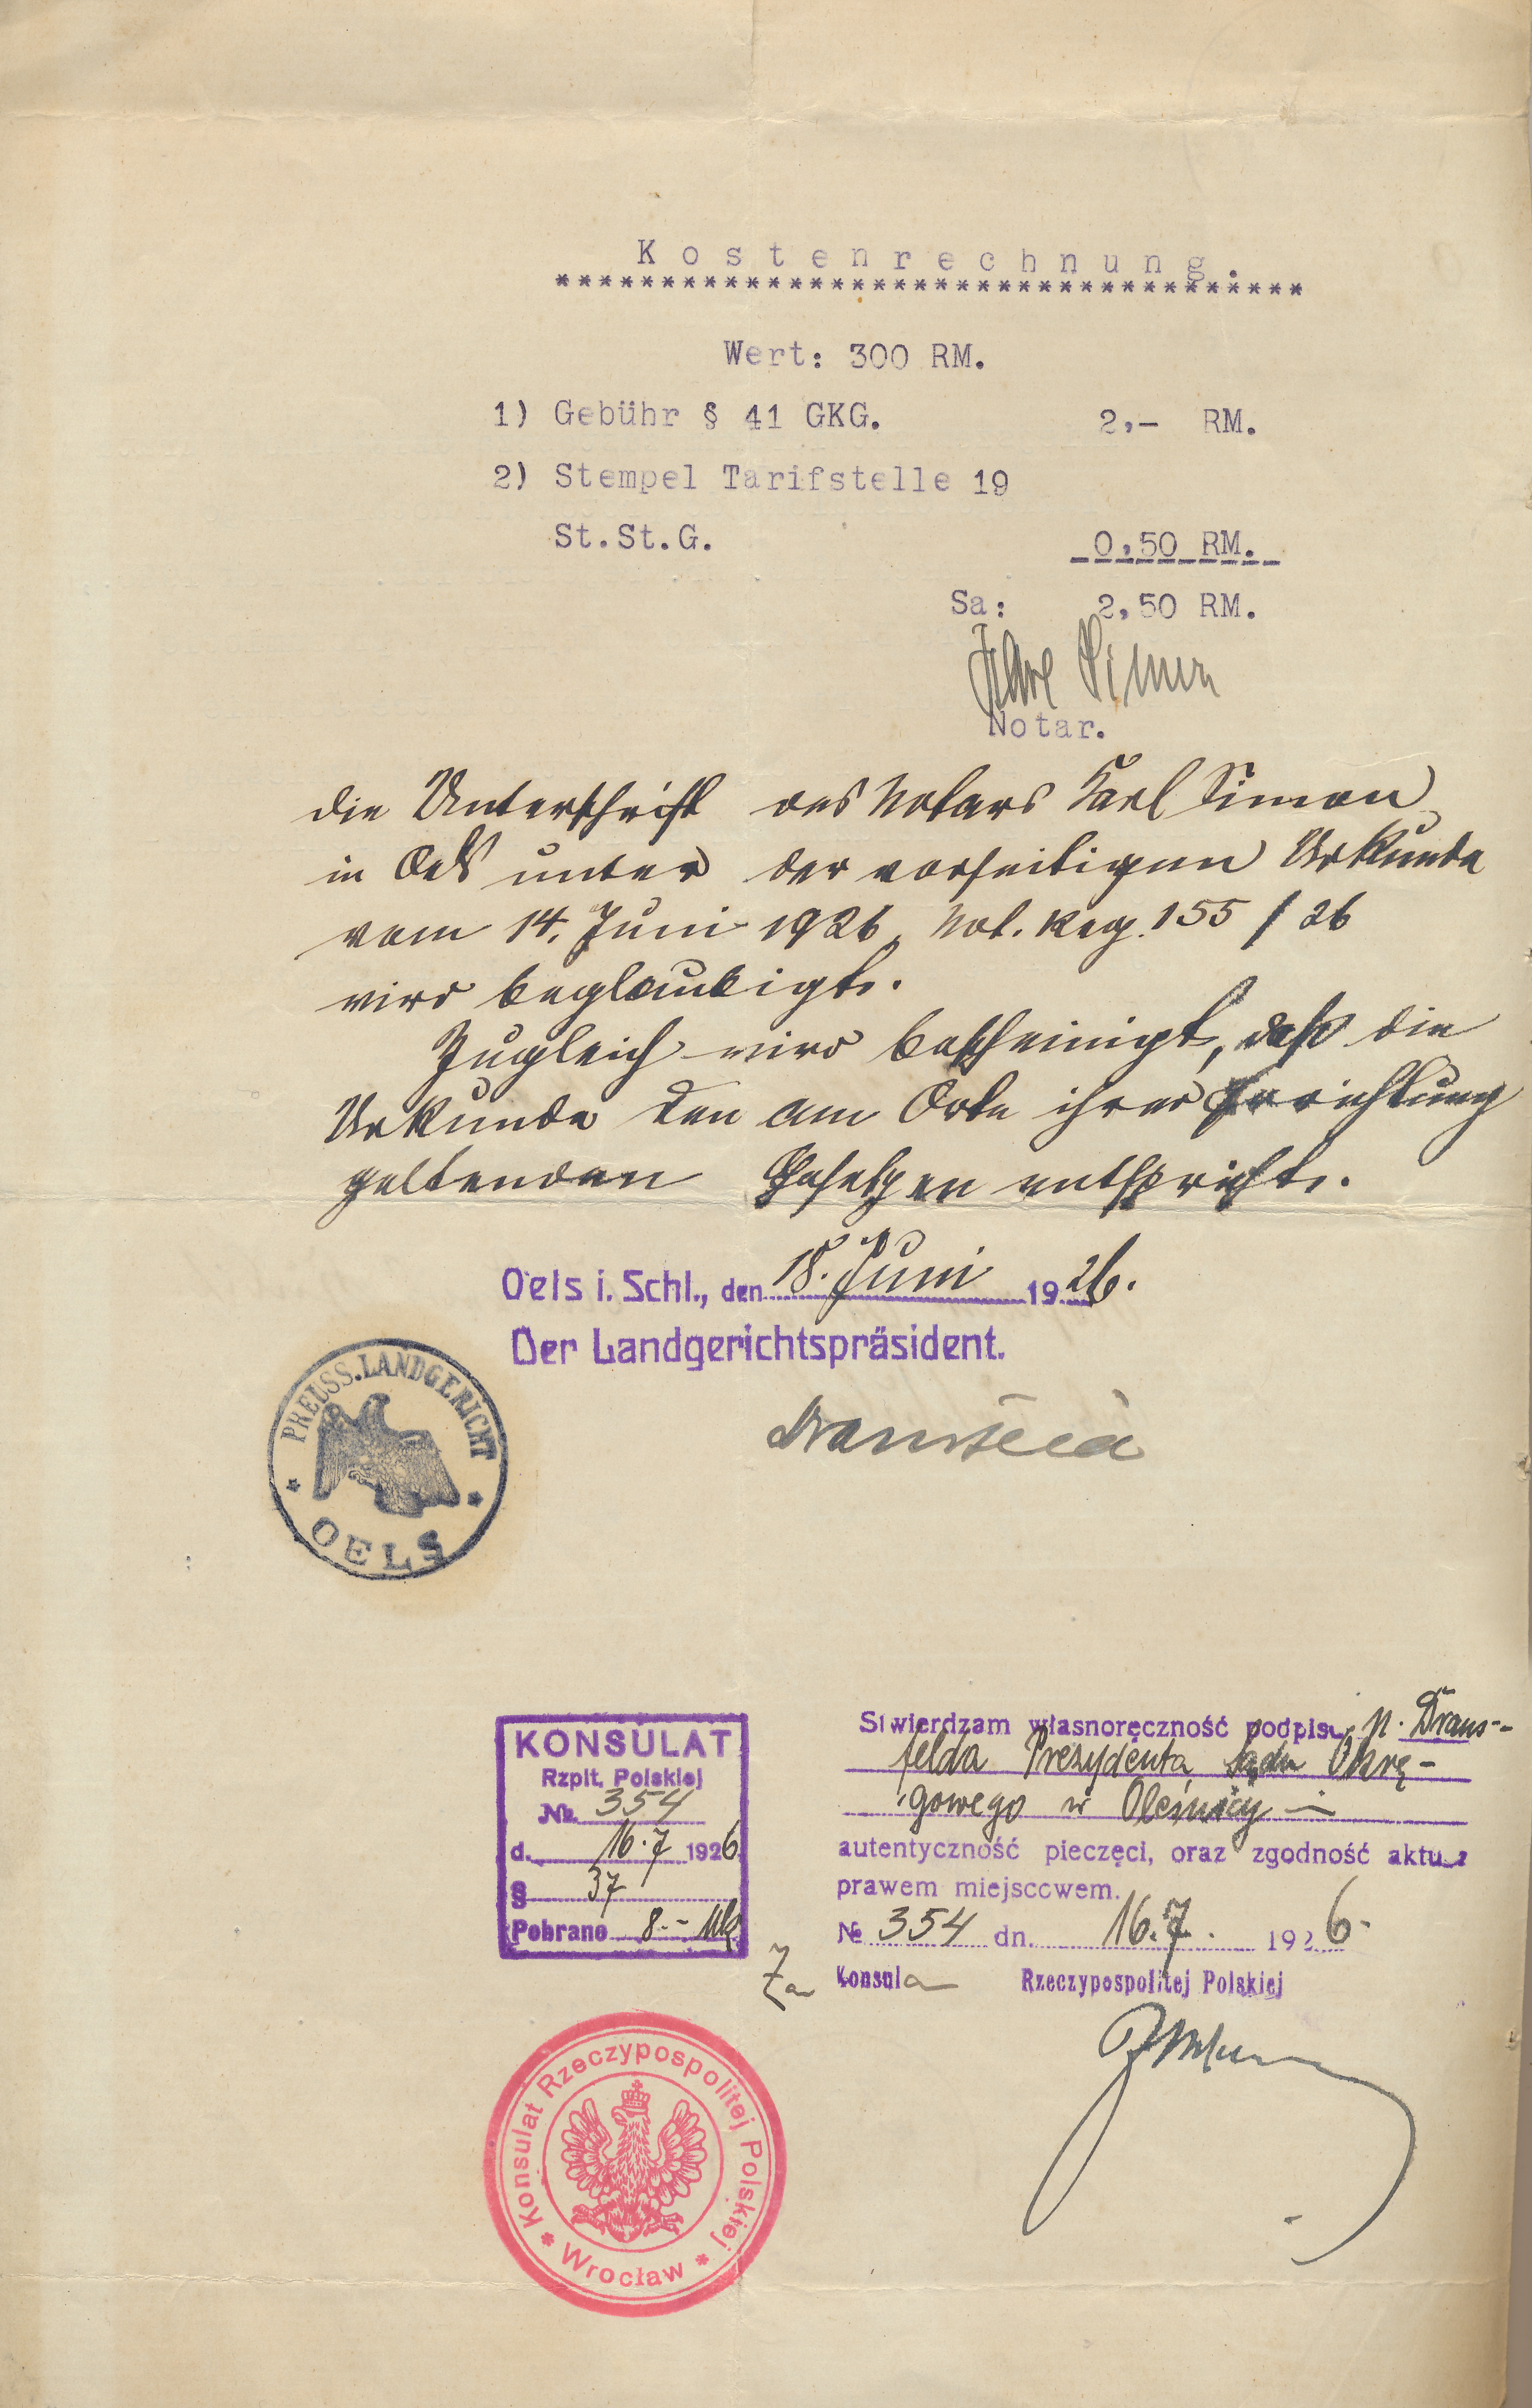 Kostenrechnung.
************************************
Wert: 300 RM.
1) Gebühr § 41 GKG. 2,- RM.
2) Stempel Tarifstelle 19
St.St.G. 0,50 RM.
Sa: 2,50 RM.
Karl Simon
Notar.
die Unterschrift des Notars Karl Simon
in Oels unter der vorseitigen Urkunde
vom 14. Juni 1926, Not. Reg. 155/26
wird beglaubigt.
Zugleich wird bescheinigt, daß die
Urkunde den am Orte ihrer Errichtung
geltenden Gesetzen entspricht.
Oels i. Schl., den 18. Juni 1926.
Der Landgerichtspräsident.
PREUSS. LANDGERICHT
* OELS *
KONSULAT
Rzplt. Polskiej
№ 354
d. 16.7 1926
§ 37
Pobrano 8.-- Mk
Stwierdzam własnoręczność podpisu p. Drans-
felda Prezydenta Sądu Okrę-
gowego w Oleśnicy —
autentyczność pieczęci, oraz zgodność aktu z
prawem miejscowem.
№ 354 dn. 16.7. 1926.
Za Konsula Rzeczypospolitej Polskiej
Konsulat Rzeczypospolitej Polskiej
* Wrocław *